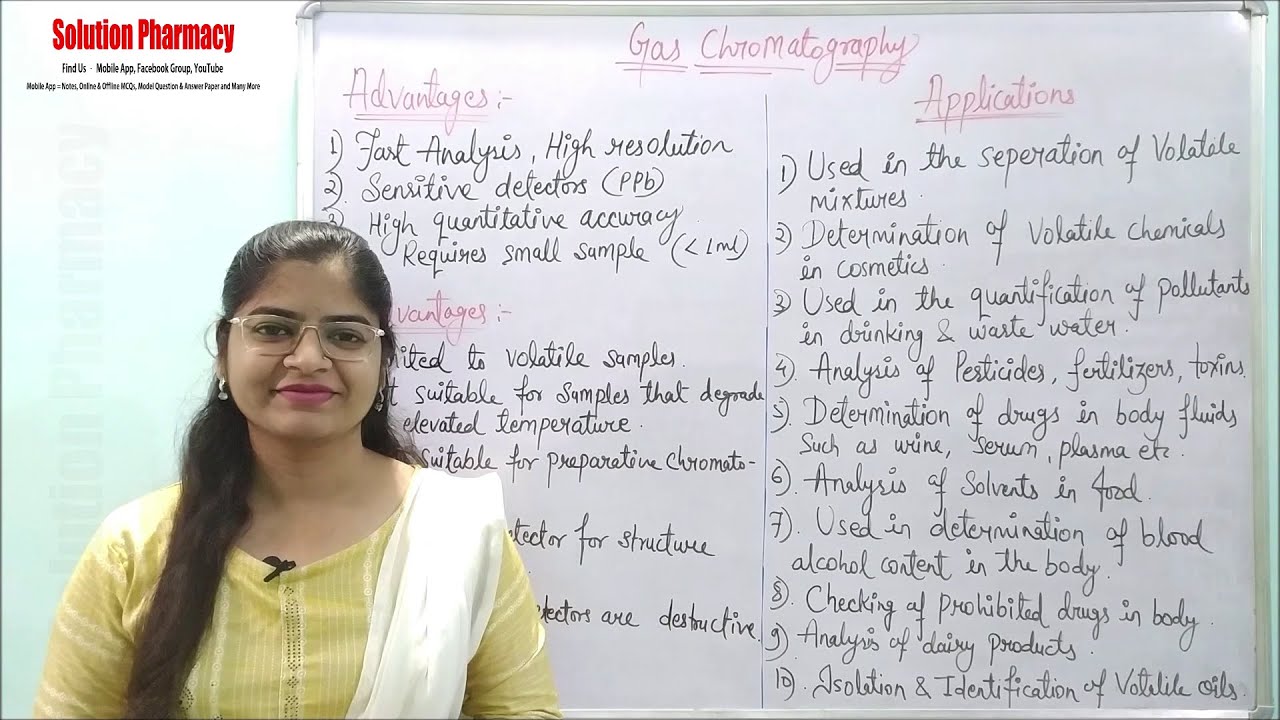 Solution Pharmacy
Find Us - Mobile App, Facebook Group, YouTube
Mobile App = Notes, Online & Offline MCQs, Model Question & Answer Paper and Many More
Solution Pharmacy
Gas Chromatography
Advantages :-
1) Fast Analysis, High resolution
2) Sensitive detectors (PPb)
3) High quantitative accuracy.
Requires small sample (<1ml)
vantages :-
ited to volatile samples.
suitable for samples that degrade
elevated temperature.
suitable for preparative chromato-
tector for structure
etectors are destructive.
Applications
1) Used in the seperation of Volatile
mixtures.
2) Determination of Volatile chemicals
in cosmetics.
3) Used in the quantification of pollutants
in drinking & waste water.
4) Analysis of Pesticides, fertilizers, toxins.
5) Determination of drugs in body fluids
Such as urine, serum, plasma etc.
6) Analysis of Solvents in food.
7). Used in determination of blood
alcohol content in the body.
8). Checking of prohibited drugs in body.
9) Analysis of dairy products.
10). Isolation & Identification of Volatile oils.